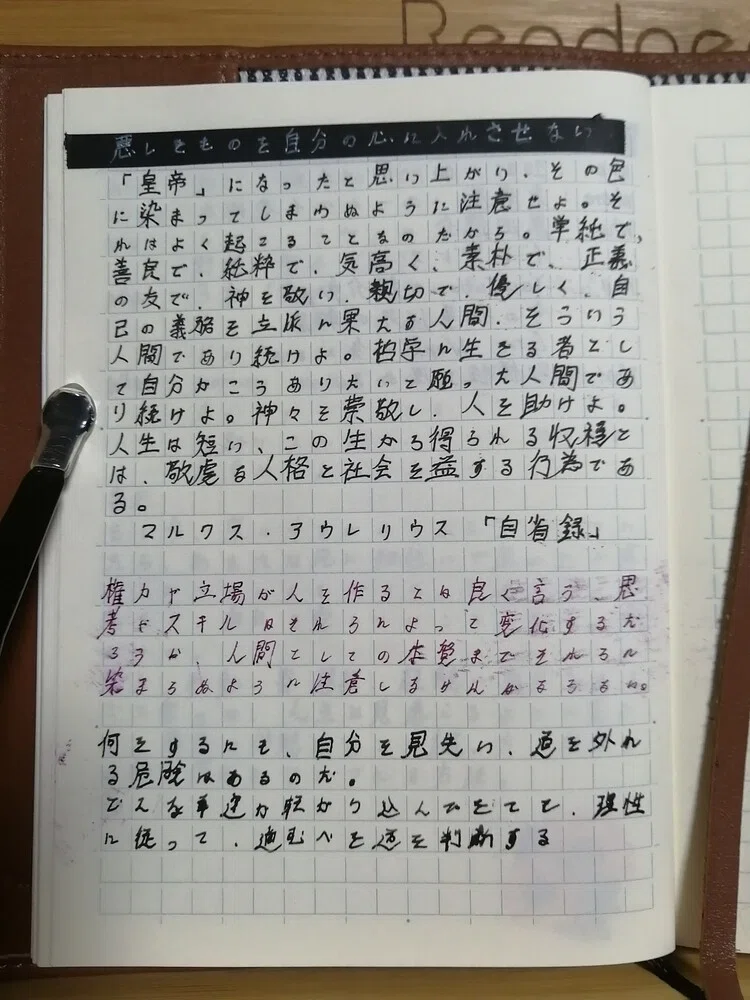 Readne
悪しきものを自分の心に入れさせない
「皇帝」になったと思い上がり、その色
に染まってしまわぬように注意せよ。そ
れはよく起こることなのだから。単純で、
善良で、純粋で、気高く、素朴で、正義
の友で、神を敬い、親切で、優しく、自
己の義務を立派に果たす人間、そういう
人間であり続けよ。哲学に生きる者とし
て自分がこうありたいと願った人間であ
り続けよ。神々を崇敬し、人を助けよ。
人生は短い、この生から得られる収穫と
は、敬虔な人格と社会を益する行為であ
る。
マルクス・アウレリウス「自省録」
権力や立場が人を作るとは良く言う、思
考やスキルはそれらによって変化するだ
ろうが、人間としての本質までそれらに
染まらぬように注意しなければならない。
何をするにも、自分を見失い、道を外れ
る危険はあるのだ。
どんな幸運が転がり込んできても、理性
に従って、進むべき道を判断する